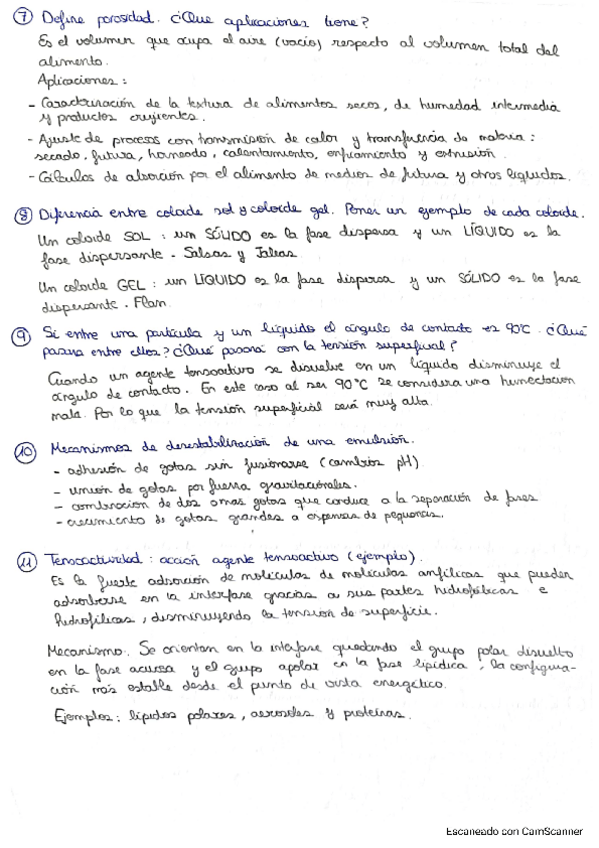 ⑦ Define porosidad. ¿Que aplicaciones tiene?
Es el volumen que ocupa el aire (vacío) respecto al volumen total del
alimento.
Aplicaciones:
- Caracterización de la textura de alimentos secos, de humedad intermedia
y productos crujientes.
- Ajuste de procesos con transmisión de calor y transferencia de materia:
secado, fritura, horneado, calentamiento, enfriamiento y extrusión.
- Cálculos de absorción por el alimento de medios de fritura y otros líquidos.
⑧ Diferencia entre coloide sol y coloide gel. Poner un ejemplo de cada coloide.
Un coloide SOL: un SÓLIDO es la fase dispersa y un LÍQUIDO es la
fase dispersante. Salsas y Jaleas.
Un coloide GEL: un LÍQUIDO es la fase dispersa y un SÓLIDO es la fase
dispersante. Flan.
⑨ Si entre una partícula y un líquido el ángulo de contacto es 90°C. ¿Qué
pasara entre ellos? ¿Qué pasará con la tensión superficial?
Cuando un agente tensoactivo se disuelve en un líquido disminuye el
ángulo de contacto. En este caso al ser 90°C se considera una humectación
mala. Por lo que la tensión superficial será muy alta.
⑩ Mecanismos de desestabilización de una emulsión.
- adhesión de gotas sin fusionarse (cambios pH)
- unión de gotas por fuerza gravitacionales.
- combinación de dos o mas gotas que conduce a la separación de fases
- crecimiento de gotas grandes a expensas de pequeñas.
⑪ Tensoactividad: acción agente tensoactivo (ejemplo).
Es la fuerte adsorción de moléculas de moléculas anfílicas que pueden
adsorberse en la interfase gracias a sus partes hidrofóbicas e
hidrofílicas, disminuyendo la tensión de superficie.
Mecanismo: Se orientan en la interfase quedando el grupo polar disuelto
en la fase acuosa y el grupo apolar en la fase lipídica, la configura-
ción más estable desde el punto de vista energético.
Ejemplos: lípidos polares, aerosoles y proteínas.
Escaneado con CamScanner